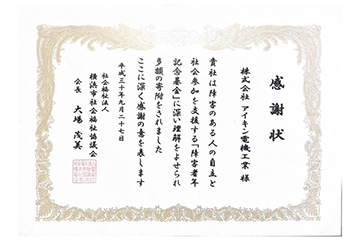 感謝状
株式会社 アイキン電機工業 様
貴社は障害のある人の自立と
社会参加を支援する「障害者年
記念基金」に深い理解をよせられ
多額の寄附をされました
ここに深く感謝の意を表します
平成三十年九月二十七日
社会福祉法人
横浜市社会福祉協議会
会長 大場 茂美